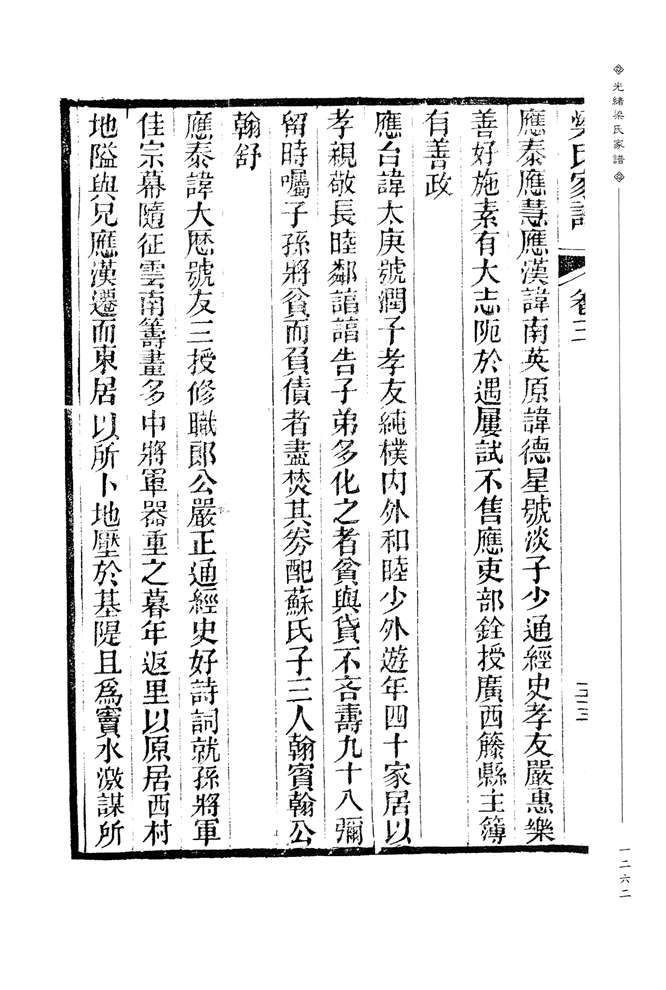 光緒梁氏家譜
一二六二
梁氏家譜 卷三 三三
應泰應慧應漢諱南英原諱德星號淡子少通經史孝友嚴惠樂
善好施素有大志阨於遇屢試不售應吏部銓授廣西籐縣主簿
有善政
應台諱太庚號潤子孝友純樸內外和睦少外遊年四十家居以
孝親敬長睦鄰諳諳告子弟多化之者貧與貸不吝壽九十八彌
留時囑子孫將貧而負債者盡焚其券配蘇氏子三人翰賓翰公
翰舒
應泰諱大歷號友三授修職郎公嚴正通經史好詩詞就孫將軍
佳宗幕隨征雲南籌畫多中將軍器重之暮年返里以原居西村
地隘與兄應漢遷而東居以所卜地壓於基隄且為竇水激謀所